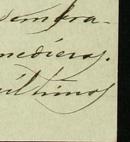 sembra-
medieros.
últimos